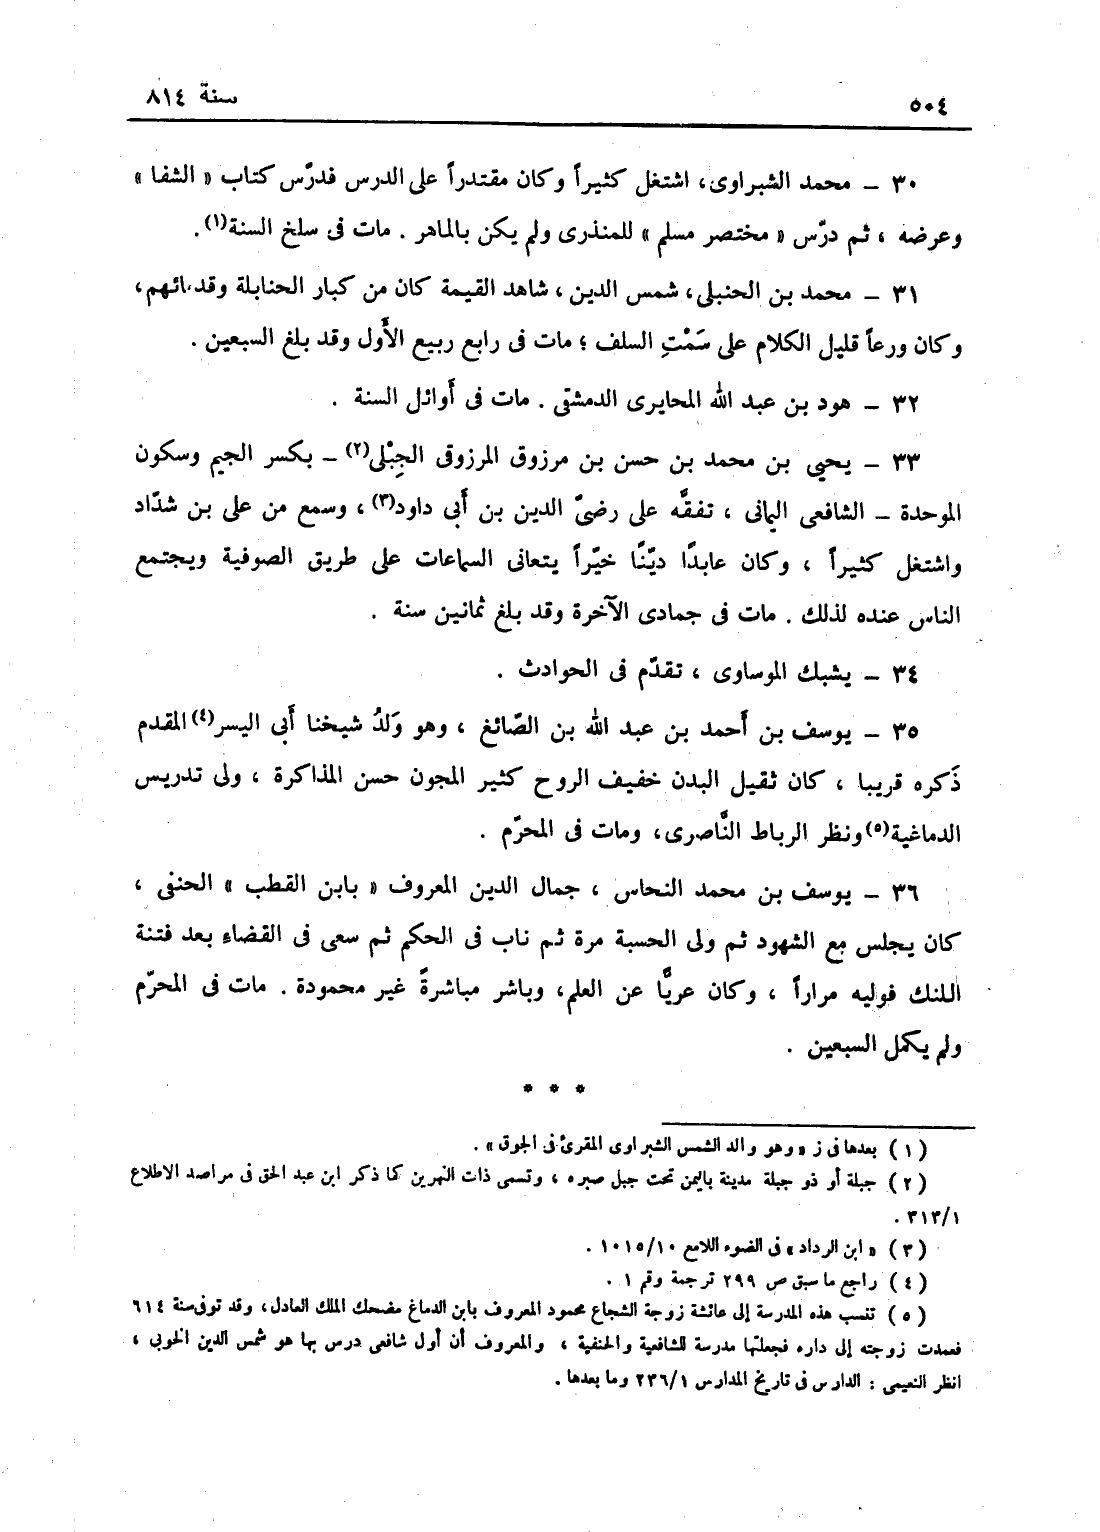 ٥٠٤
سنة ٨١٤
٣٠ – محمد الشبراوى، اشتغل كثيراً وكان مقتدراً على الدرس فدرّس كتاب « الشفا »
وعرضه ، ثم درّس « مختصر مسلم » للمنذرى ولم يكن بالماهر . مات فى سلخ السنة(١).
٣١ – محمد بن الحنبلى، شمس الدين ، شاهد القيمة كان من كبار الحنابلة وقدمائهم،
وكان ورعاً قليل الكلام على سَمْتِ السلف ؛ مات فى رابع ربيع الأَول وقد بلغ السبعين .
٣٢ – هود بن عبد الله المحايرى الدمشقى . مات فى أَوائل السنة .
٣٣ – يحيى بن محمد بن حسن بن مرزوق المرزوقى الجِبْلى(٢) – بكسر الجيم وسكون
الموحدة – الشافعى اليمانى ، تفقَّه على رضىّ الدين بن أَبى داود(٣) ، وسمع من على بن شدّاد
واشتغل كثيراً ، وكان عابدًا ديّنًا خيّراً يتعانى السماعات على طريق الصوفية ويجتمع
الناس عنده لذلك . مات فى جمادى الآخرة وقد بلغ ثمانين سنة .
٣٤ – يشبك الموساوى ، تقدّم فى الحوادث .
٣٥ – يوسف بن أَحمد بن عبد الله بن الصّائغ ، وهو وَلدُ شيخنا أَبى اليسر(٤) المقدم
ذَكره قريبا ، كان ثقيل البدن خفيف الروح كثير المجون حسن المذاكرة ، ولى تدريس
الدماغية(٥) ونظر الرباط النَّاصرى، ومات فى المحرّم .
٣٦ – يوسف بن محمد النحاس ، جمال الدين المعروف « بابن القطب » الحنفى ،
كان يجلس مع الشهود ثم ولى الحسبة مرة ثم ناب فى الحكم ثم سعى فى القضاء بعد فتنة
اللنك فوليه مراراً ، وكان عريًّا عن العلم، وباشر مباشرةً غير محمودة . مات فى المحرّم
ولم يكمل السبعين .
* * *
(١) بعدها فى ز « وهو والد الشمس الشبراوى المقرئ فى الجوق » .
(٢) جبلة أو ذو جبلة مدينة باليمن تحت جبل صبره ، وتسمى ذات النهرين كما ذكر ابن عبد الحق فى مراصد الاطلاع
٣١٣/١ .
(٣) « ابن الرداد » فى الضوء اللامع ١٠١٥/١٠ .
(٤) راجع ما سبق ص ٢٩٩ ترجمة وقم ١ .
(٥) تنسب هذه المدرسة إلى عائشة زوجة الشجاع محمود المعروف بابن الدماغ مضحك الملك العادل، وقد توفى سنة ٦١٤
فعمدت زوجته إلى داره فجعلتها مدرسة للشافعية والحنفية ، والمعروف أن أول شافعى درس بها هو شمس الدين الخوبى ،
انظر النعيمى : الدارس فى تاريخ المدارس ٢٣٦/١ وما بعدها .